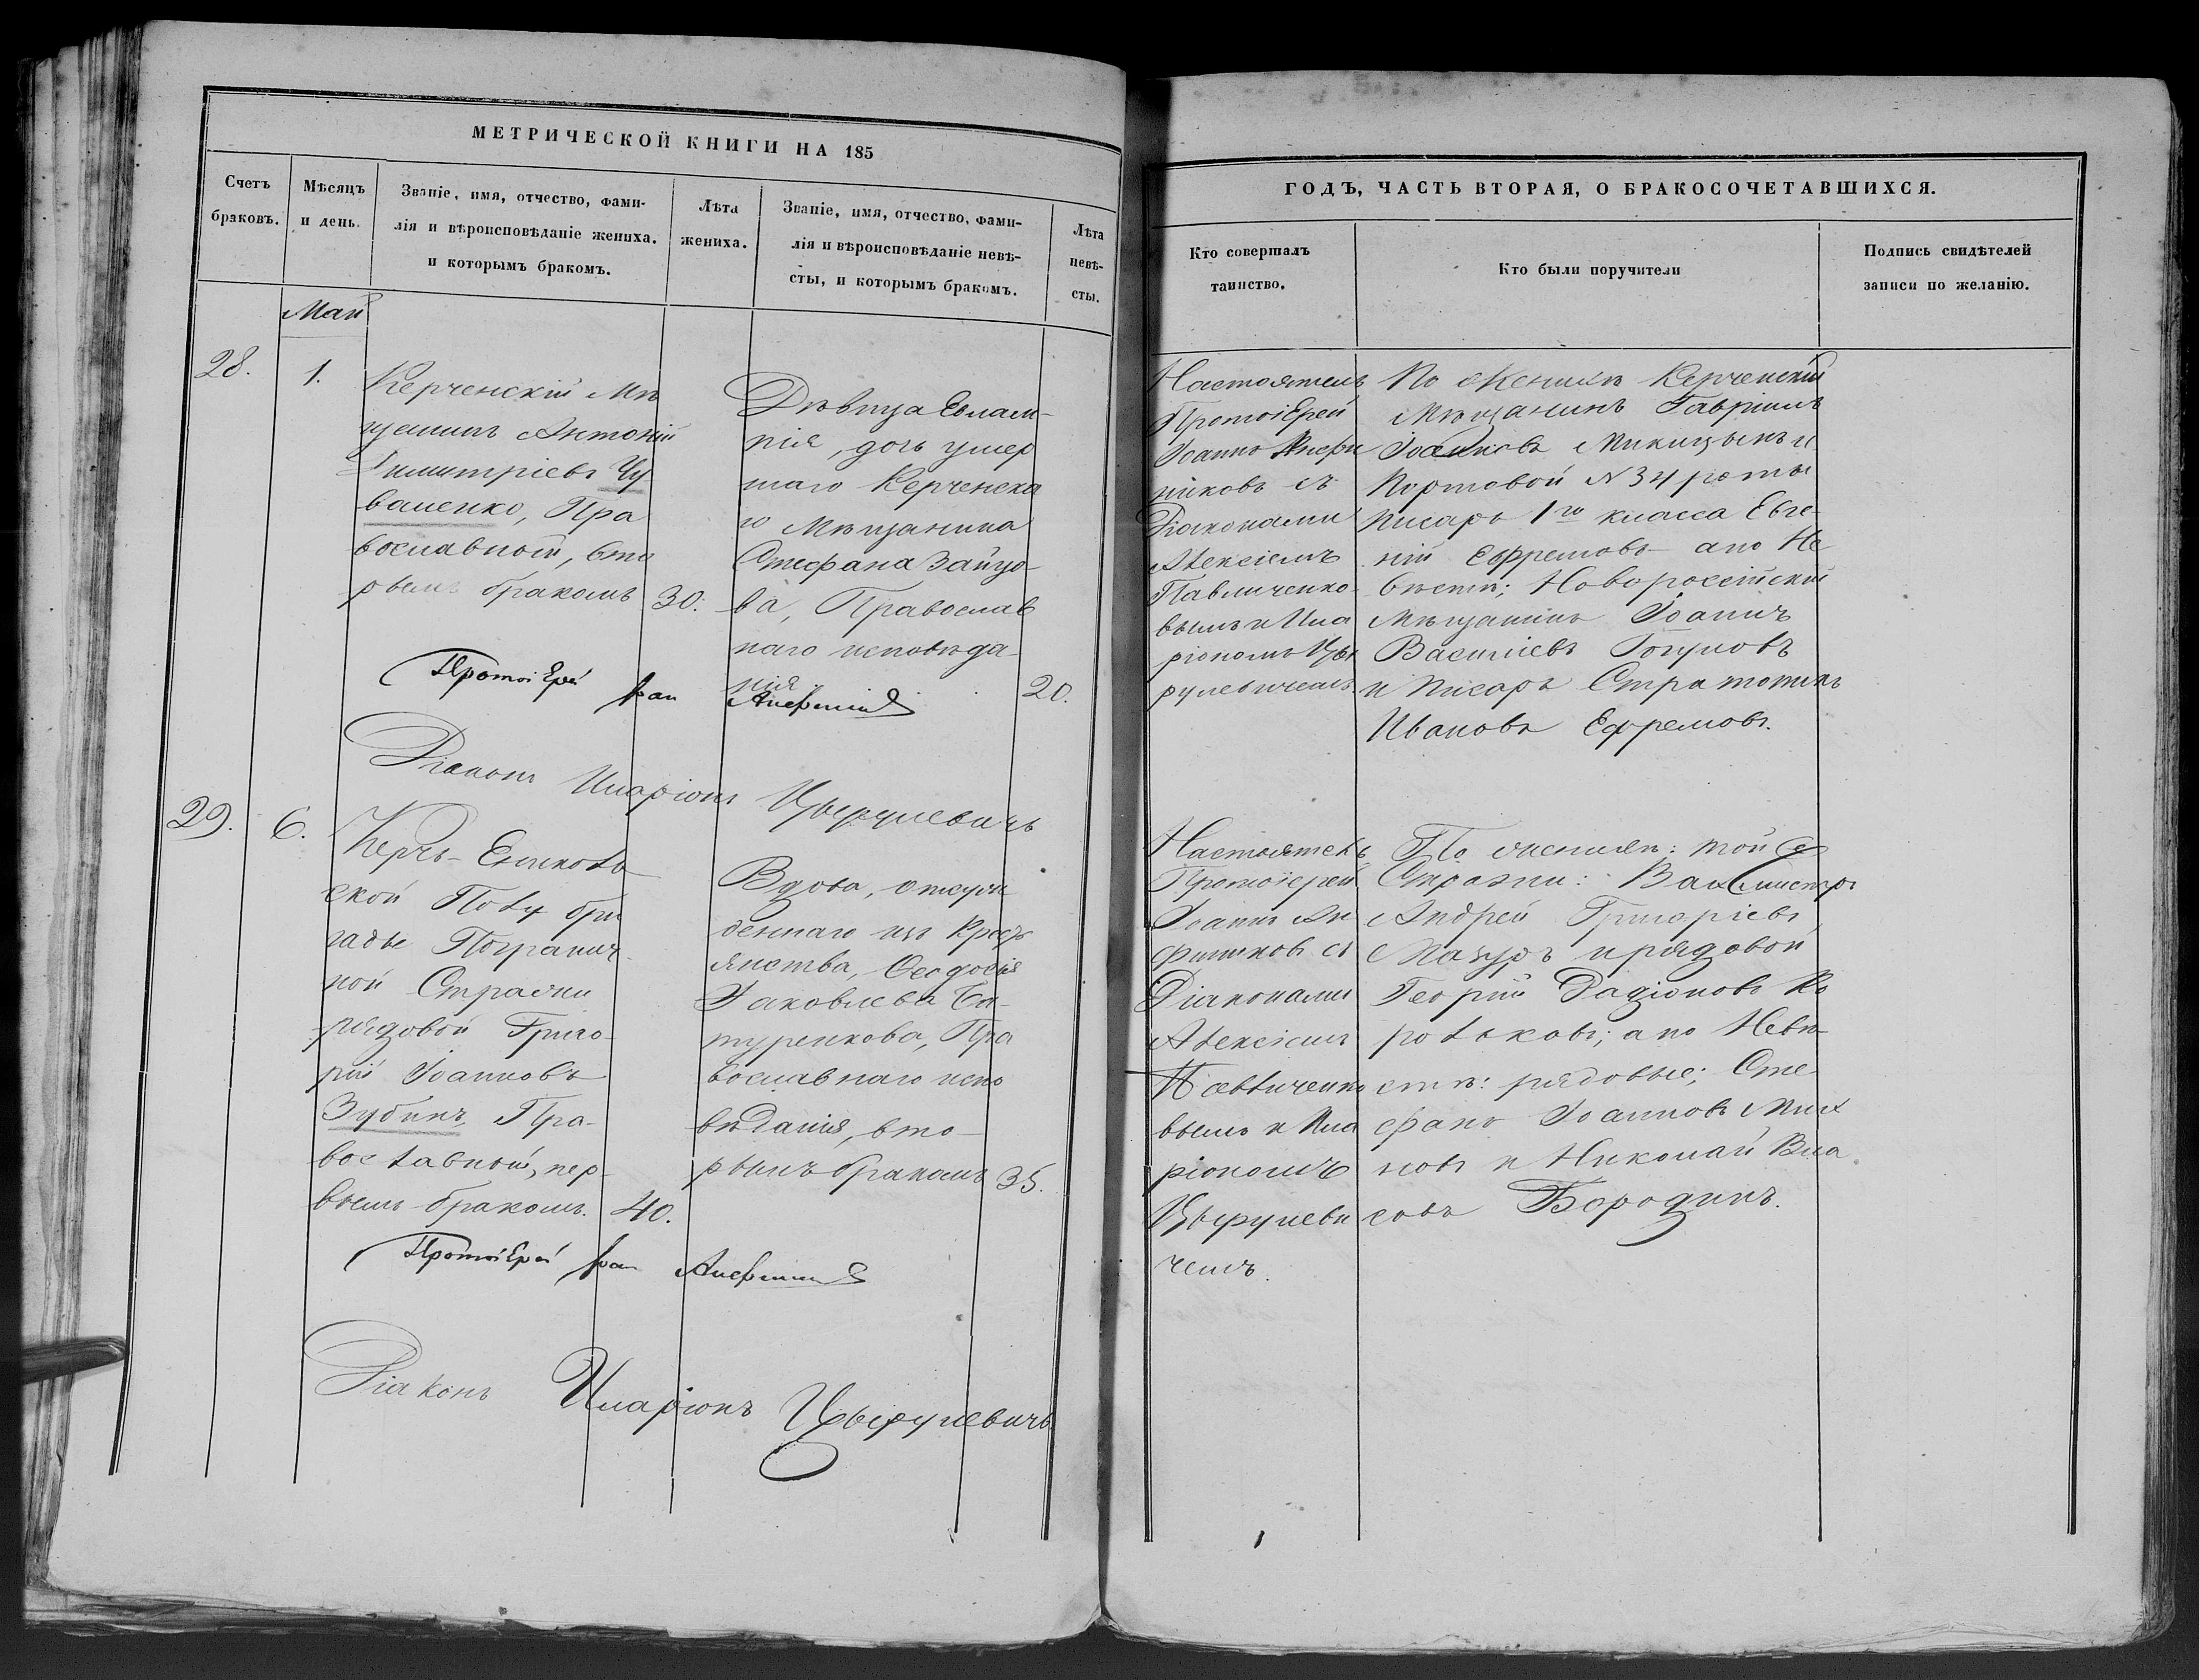 МЕТРИЧЕСКОЙ КНИГИ НА 185
Счетъ
браковъ.
Мѣсяцъ
и день.
Званіе, имя, отчество, фами-
лія и вѣроисповѣданіе жениха.
и которымъ бракомъ.
Лѣта
жениха.
Званіе, имя, отчество, фами-
лія и вѣроисповѣданіе невѣ-
сты, и которымъ бракомъ.
Лѣта
невѣ-
сты.
Май
28.
1.
Керченскій Мѣ
щанинъ Антоній
Димитріевъ Чу
ваненко, Пра
вославной, вто
рымъ бракомъ
30.
Дѣвица Евлам-
пія, дочь умер
шаго Керченска
го Мѣщанина
Стефана Зайцо-
ва, Православ
наго исповѣда-
нія
20.
ПротоіЕрей Іоан
Діаконъ Иларіонъ Цырулевичъ
29.
6.
Керчь-Еникольв
ской Полу бри
гады Погранич
ной Стражи
рядовой Григо-
рій Іоанновъ
Зубинъ, Пра-
вославной, пер-
вымъ бракомъ.
40.
Вдова,
деннаго изъ Кресть
янства, Ѳеодосія
Іаковлева Ба-
туренкова, Пра
вославнаго испо
вѣданія, вто-
рымъ бракомъ
35.
ПротоіЕрей Іоан
Діаконъ Иларіонъ Цырулевичъ
ГОДЪ, ЧАСТЬ ВТОРАЯ, О БРАКОСОЧЕТАВШИХСЯ.
Кто совершалъ
таинство.
Кто были поручители
Подпись свидѣтелей
записи по желанію.
Настоятель
ПротоіЕрей
Іоаннъ Анфи
никовъ съ
Діаконами
Алексіемъ
Павличенко-
вымъ и Ила
ріономъ Цы
рулевичемъ
По Женихѣ Керченскій
Мѣщанинъ Гавріилъ
Іоанновъ Микицынъ и
Портовой N 34 роты
писарь 1го класса Евге-
ній Ефремовъ а по Не
вѣстѣ; Новороссійскій
Мѣщанинъ Іоаннъ
Василіевъ
и писарь Стратоникъ
Ивановъ Ефремовъ.
Настоятель
Протоіерей
Іоаннъ Ан
финиковъ съ
Діаконами
Алексіемъ
Павличенко
вымъ и Ила
ріономъ
Цырулеви
чемъ.
По женихѣ: той же
Стражи: Вахмистръ
Андрей Григоріевъ
Мазуръ и рядовой
Георгій Радіоновъ Ко
рольковъ; а по Невѣ-
стѣ: рядовые; Сте
фанъ Іоанновъ Мих
новъ и Николай Вла
совъ Бородинъ.